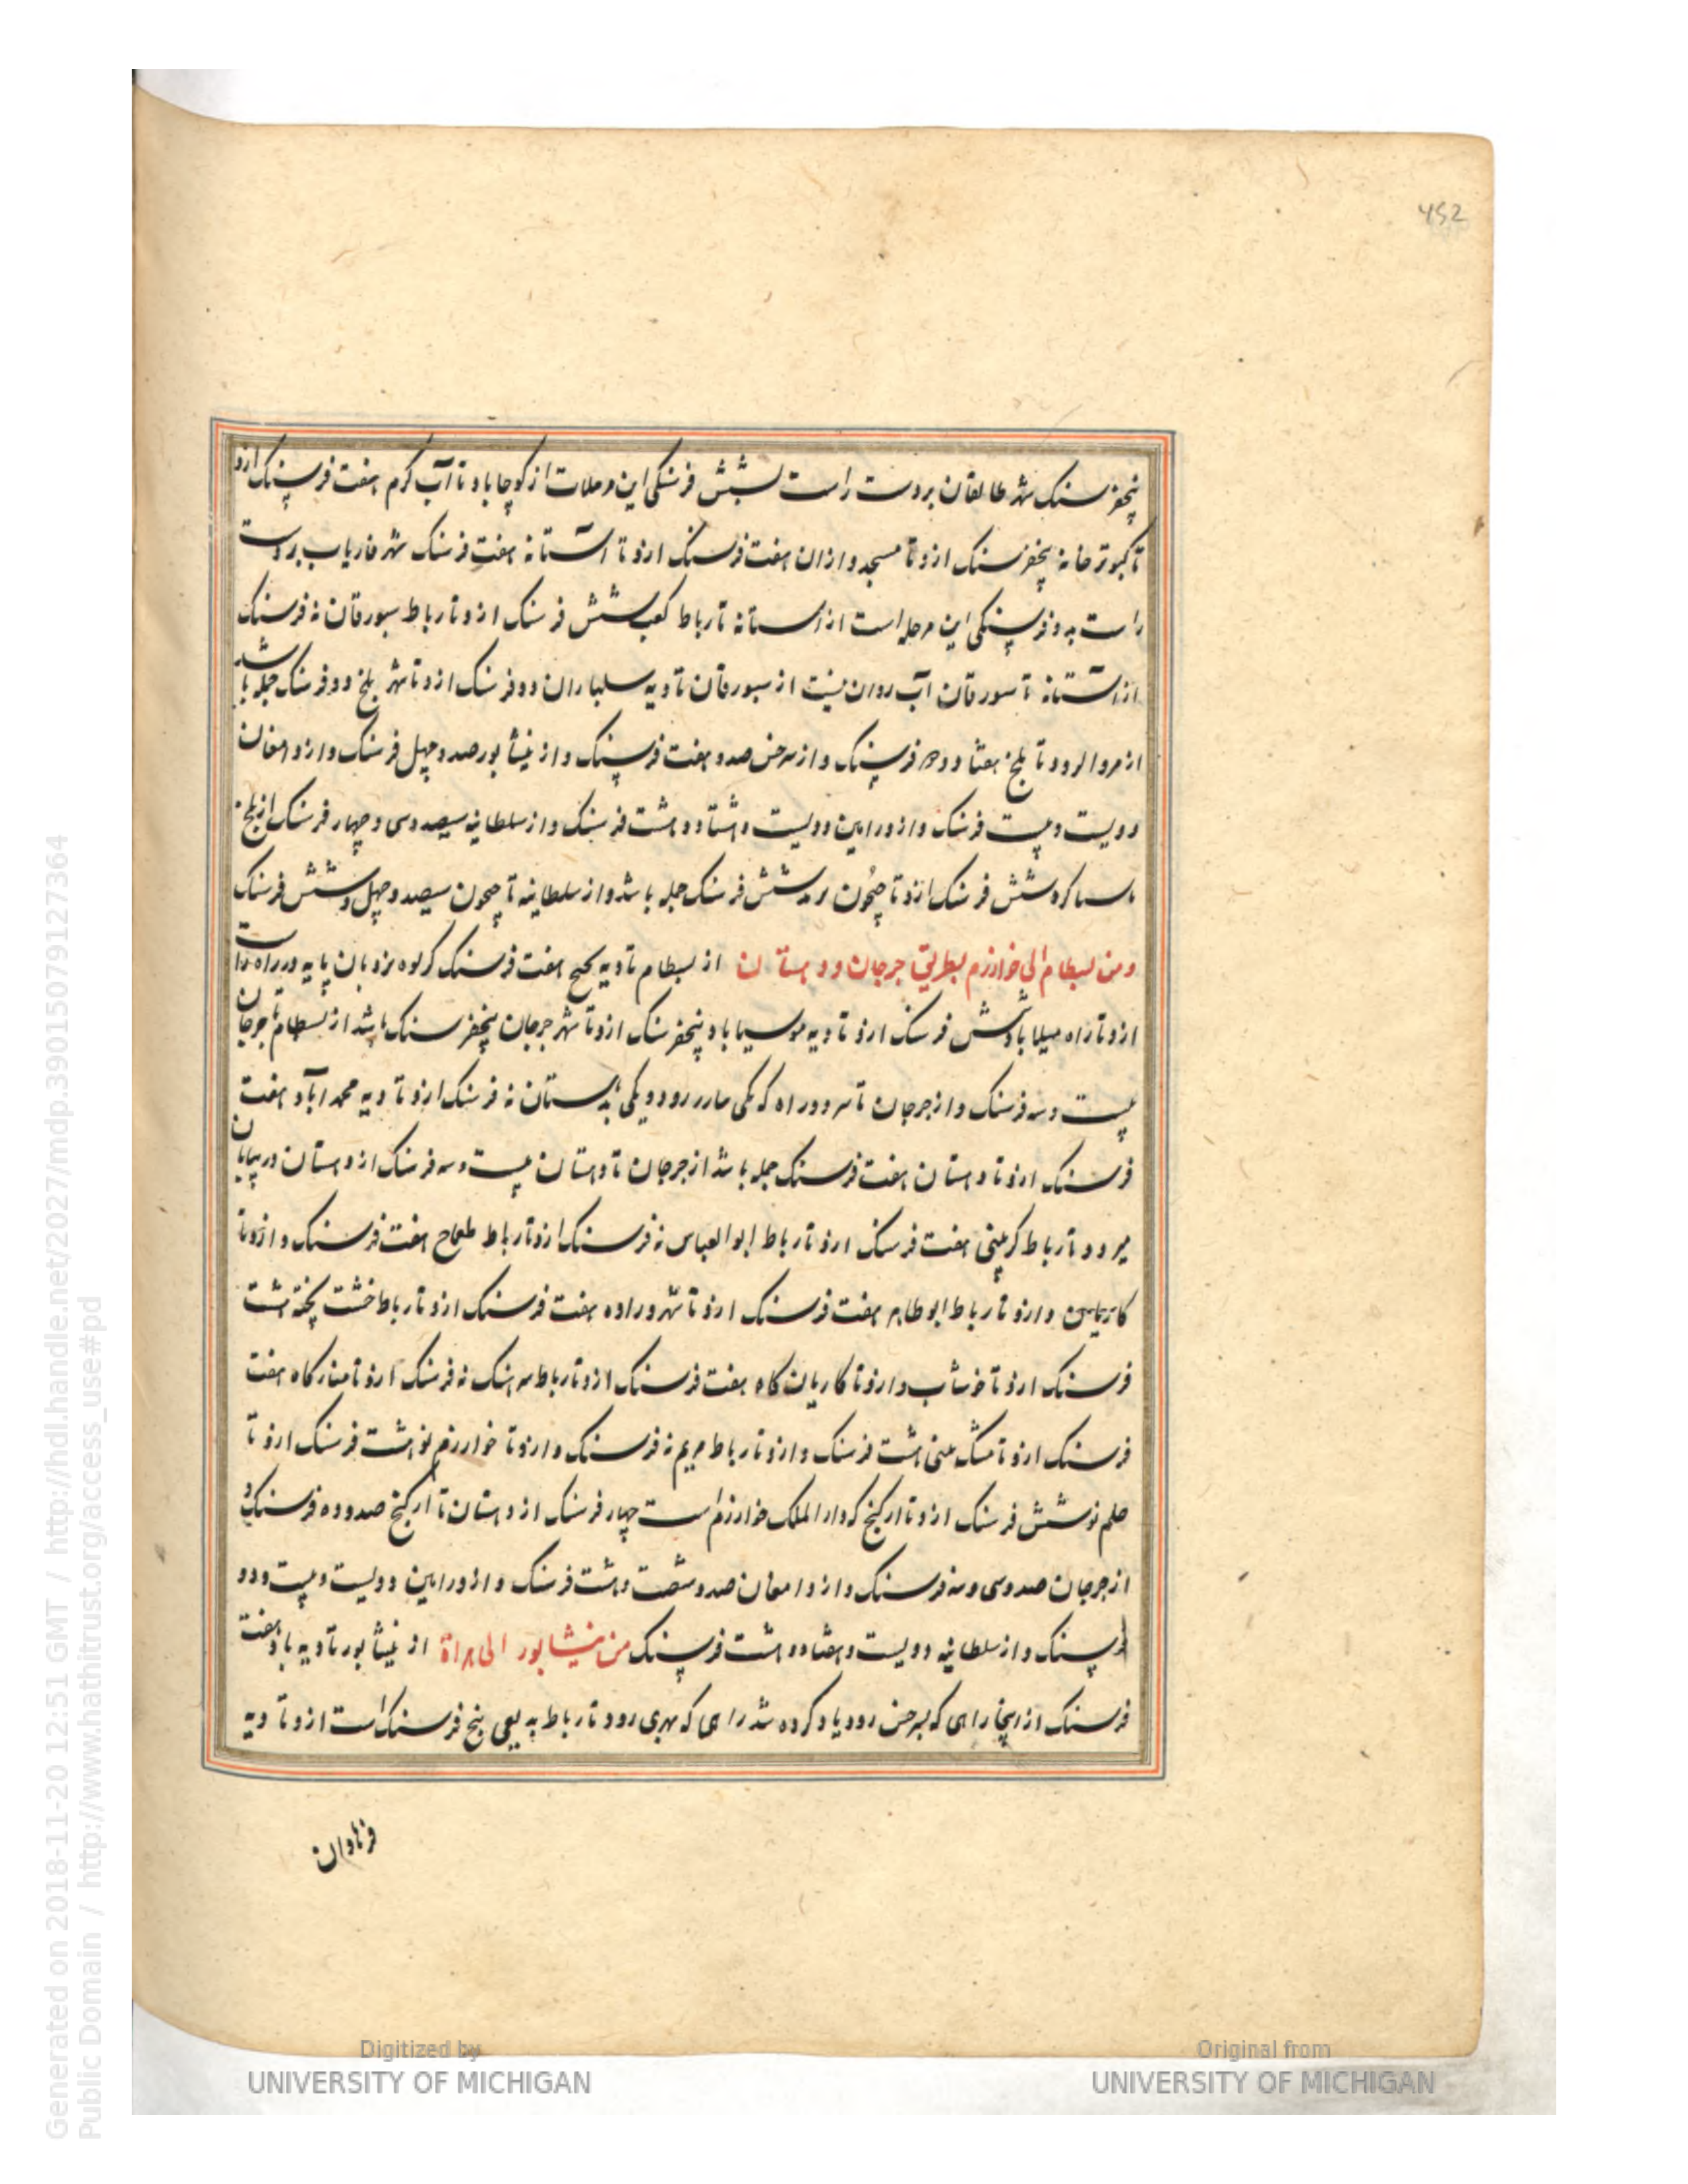 452
پنجفرسنک شهر طالقان بردست راست بشش فرسنکی این مرحلات از کوچاباد تا آب کرم هفت فرسنک ازو
تا کبوترخانه پنجفرسنک ازو تا مسجد وازان هفت فرسنک ازو تا آستانه هفت فرسنک شهر فاریاب بردست
راست بدو فرسنکی این مرحله است از آستانه تا رباط کعب شش فرسنک ازو تا رباط سبورقان نه فرسنک
از آستانه تا سبورقان آب روان نیست از سبورقان تا دیه سلباران دو فرسنک ازو تا شهر بلخ دو فرسنک جمله باشد
از مروالرود تا بلخ هفتاد و فرسنک و از سرخس صد و هفت فرسنک و از نیشابور صد و چهل فرسنک و از دامغان
دویست و بیست فرسنک و از ورامین دویست و هشتاد و هشت فرسنک و از سلطانیه سیصد و سی و چهار فرسنک از بلخ
سیاکرد شش فرسنک ازو تا جیحون شش فرسنک جمله باشد و از سلطانیه تا جیحون سیصد و چهل و شش فرسنک
ومن بسطام الی خوارزم بطریق جرجان و دهستان از بسطام تا دیه هفت فرسنک کریوه نردبان پایه در راه است
ازو تا راه میلاباد شش فرسنک ازو تا دیه موسیاباد پنجفرسنک ازو تا شهر جرجان پنجفرسنک باشد از بسطام تا جرجان
بیست و سه فرسنک و از جرجان تا سر دو راه که یکی رود و یکی بدهستان نه فرسنک ازو تا دیه محمدآباد هفت
فرسنک ازو تا دهستان هفت فرسنک جمله باشد از جرجان تا دهستان بیست و سه فرسنک از دهستان در بیابان
میرود تا رباط کرپینی هفت فرسنک ازو تا رباط ابوالعباس نه فرسنک ازو تا رباط طعماج هفت فرسنک و ازو تا
و ازو تا رباط ابوطاهر هفت فرسنک ازو تا شهر وراوه هفت فرسنک ازو تا رباط خشت پخته هشت
فرسنک ازو تا خوشاب و ازو تا کاریان کاه هفت فرسنک ازو تا رباط سرهنک نه فرسنک ازو تا منارکاه هفت
فرسنک ازو تا مشک مینی هشت فرسنک و ازو تا رباط مریم نه فرسنک و ازو تا خوارزم نو هشت فرسنک ازو تا
حلم نو شش فرسنک ازو تا ارکنج که دار الملک خوارزم است چهار فرسنک از دهستان تا ارکنج صد و ده فرسنک و
از جرجان صد و سی و سه فرسنک و از دامغان صد و شصت و هشت فرسنک و از ورامین دویست و بیست و دو
فرسنک و از سلطانیه دویست و هفتاد و هشت فرسنک من نیشابور الی هراة از نیشابور تا دیه باد هفت
فرسنک از اینجا راهی که بسرخس رود یاد کرده شد راهی که بهری رود تا رباط بدیعی پنج فرسنک است ازو تا دیه
فرنادان
Digitized by
UNIVERSITY OF MICHIGAN
Original from
UNIVERSITY OF MICHIGAN
Generated on 2018-11-20 12:51 GMT / http://hdl.handle.net/2027/mdp.39015079127364
Public Domain / http://www.hathitrust.org/access_use#pd